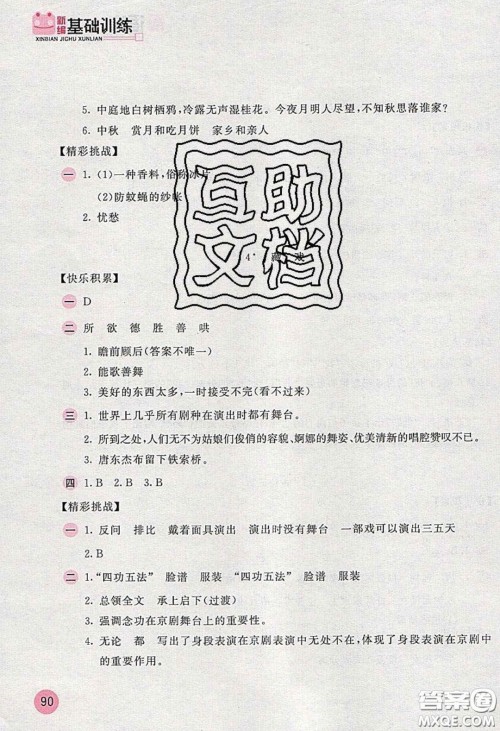 新编
基础训练
XINBIAN JICHU XUNLIAN
5. 中庭地白树栖鸦，冷露无声湿桂花。今夜月明人尽望，不知秋思落谁家？
6. 中秋 赏月和吃月饼 家乡和亲人
【精彩挑战】
一 1. (1)一种香料，俗称冰片
(2)防蚊蝇的纱帐
2. 忧愁
互助
文档
4* 藏 戏
【快乐积累】
一 D
二 所 欲 德 胜 善 哄
1. 瞻前顾后(答案不唯一)
2. 能歌善舞
3. 美好的东西太多，一时接受不完(看不过来)
三 1. 世界上几乎所有剧种在演出时都有舞台。
2. 所到之处，人们无不为姑娘们俊俏的容貌、婀娜的舞姿、优美清新的唱腔赞叹不已。
3. 唐东杰布留下铁索桥。
四 1. B 2. B 3. B
【精彩挑战】
一 1. 反问 排比 戴着面具演出 演出时没有舞台 一部戏可以演出三五天
2. B
二 1. “四功五法” 脸谱 服装 “四功五法” 脸谱 服装
2. 总领全文 承上启下(过渡)
3. 强调念功在京剧舞台上的重要性。
4. 无论 都 写出了身段表演在京剧表演中无处不在，体现了身段表演在京剧中
的重要作用。
90
答案圈
MXQE.COM